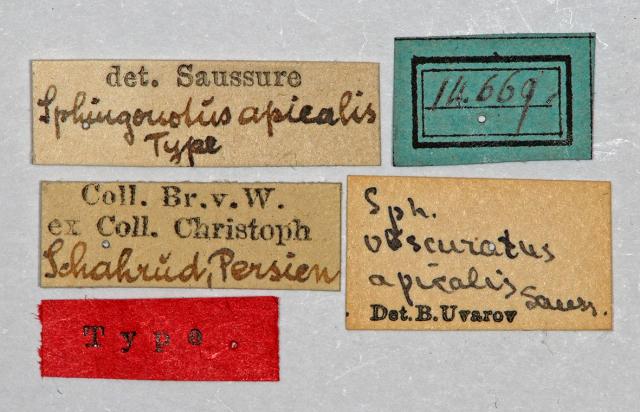 det. Saussure
Sphingonotus apicalis
Type
14.669.
Coll. Br. v. W.
ex Coll. Christoph
Schahrud, Persien
Sph.
obscuratus
apicalis Sauss.
Det. B. Uvarov
Type.